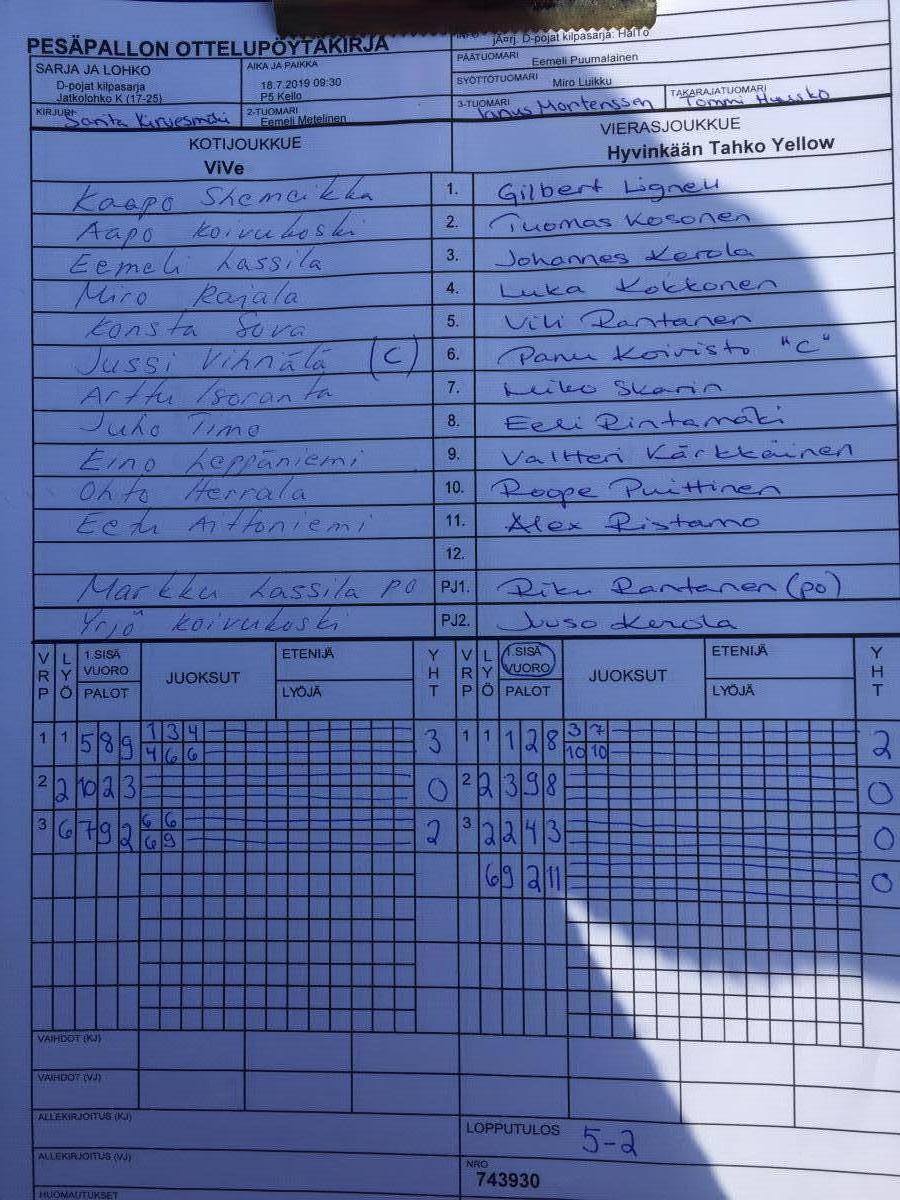 PESÄPALLON OTTELUPÖYTÄKIRJA
INFO jÄ¤rj. D-pojat kilpasarja: HalTo
SARJA JA LOHKO
D-pojat kilpasarja
Jatkolohko K (17-25)
AIKA JA PAIKKA
18.7.2019 09:30
P5 Kello
PÄÄTUOMARI Eemeli Puumalainen
SYÖTTÖTUOMARI Miro Luikku
KIRJURI Santa
2-TUOMARI
Eemeli Metelinen
3-TUOMARI
TAKARAJATUOMARI
Tommi
KOTIJOUKKUE
ViVe
VIERASJOUKKUE
Hyvinkään Tahko Yellow
Kaapo Shemeikka 1. Gilbert Lignell
Aapo Koivukoski 2. Tuomas Kosonen
Eemeli Lassila 3. Johannes Kerola
Miro Rajala 4. Luka Kokkonen
Konsta Sova 5. Vili Rantanen
Jussi Vihnälä (C) 6. Panu Koivisto "C"
Arttu Isoranta 7. Skarin
Juho Timo 8. Eeli Rintamäki
Eino Leppäniemi 9. Valtteri Kärkkäinen
Ohto Herrala 10. Roope Puittinen
Eetu Aittoniemi 11. Alex Ristamo
12.
Markku Lassila po PJ1. Riku Rantanen (po)
Yrjö Koivukoski PJ2. Juuso Kerola
VRP LYÖ 1.SISÄ VUORO PALOT JUOKSUT ETENIJÄ LYÖJÄ YHT VRP LYÖ 1.SISÄ VUORO PALOT JUOKSUT ETENIJÄ LYÖJÄ YHT
1 1 5 8 9 1 3 4 3 1 1 1 2 8 3 7 2
4 6 6 10 10
2 2 10 2 3 0 2 2 3 9 8 0
3 6 7 9 2 6 6 2 3 2 2 4 3 0
6 9
6 9 2 11 0
VAIHDOT (KJ)
VAIHDOT (VJ)
ALLEKIRJOITUS (KJ)
LOPPUTULOS 5-2
ALLEKIRJOITUS (VJ)
NRO
743930
HUOMAUTUKSET